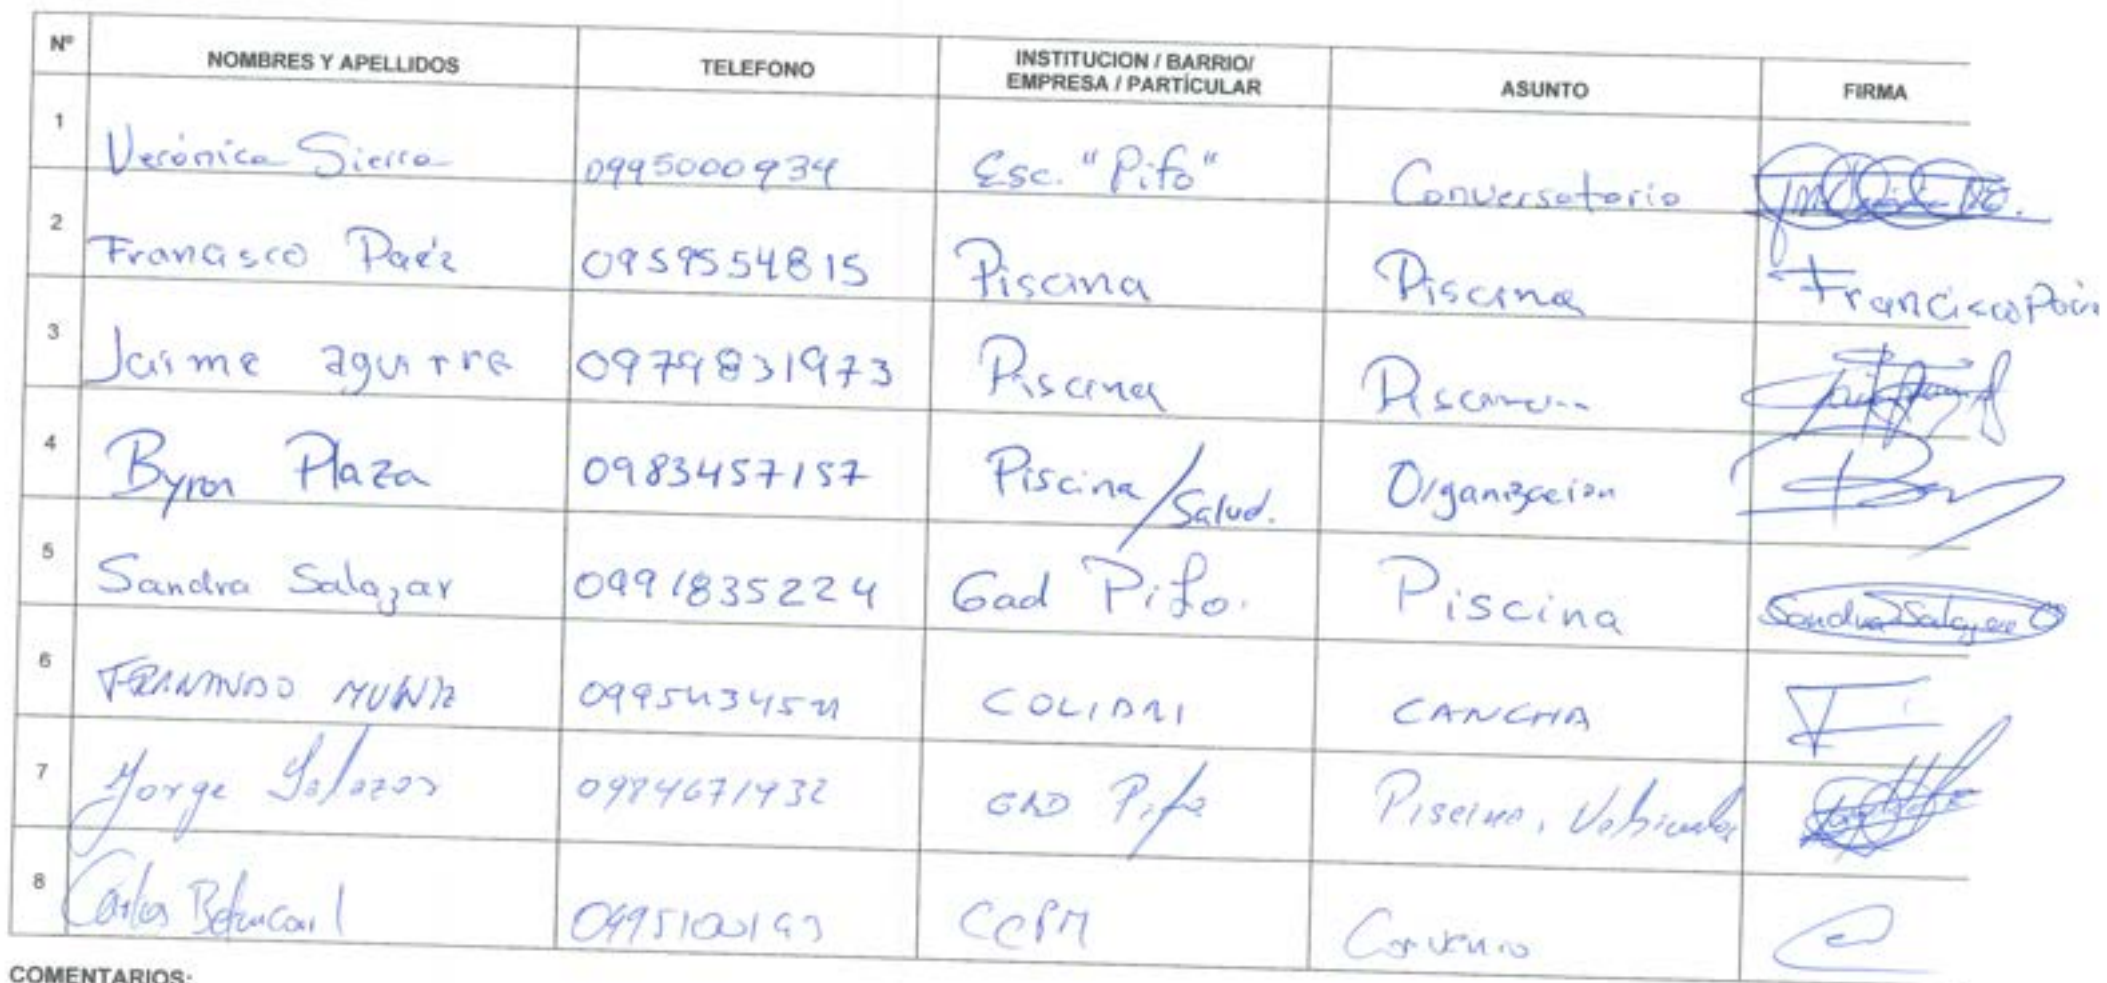 Nº NOMBRES Y APELLIDOS TELEFONO INSTITUCION / BARRIO/ EMPRESA / PARTÍCULAR ASUNTO FIRMA
1 Verónica Sierra 0995000934 Esc. "Pifo" Conversatorio
2 Francisco Paéz 0959554815 Piscina Piscina Francisco
3 Jaime aguirre 0979831973 Piscina Piscina
4 Byron Plaza 0983457157 Piscina /Salud. Organizacion
5 Sandra Salazar 0991835224 Gad Pifo. Piscina Sandra Salazar
6 FERNANDO MUÑIZ COLIBRI CANCHA
7 Jorge Salazar 0984671932 GAD Pifo Piscina,
8 Carlos CCPM Convenio
COMENTARIOS: